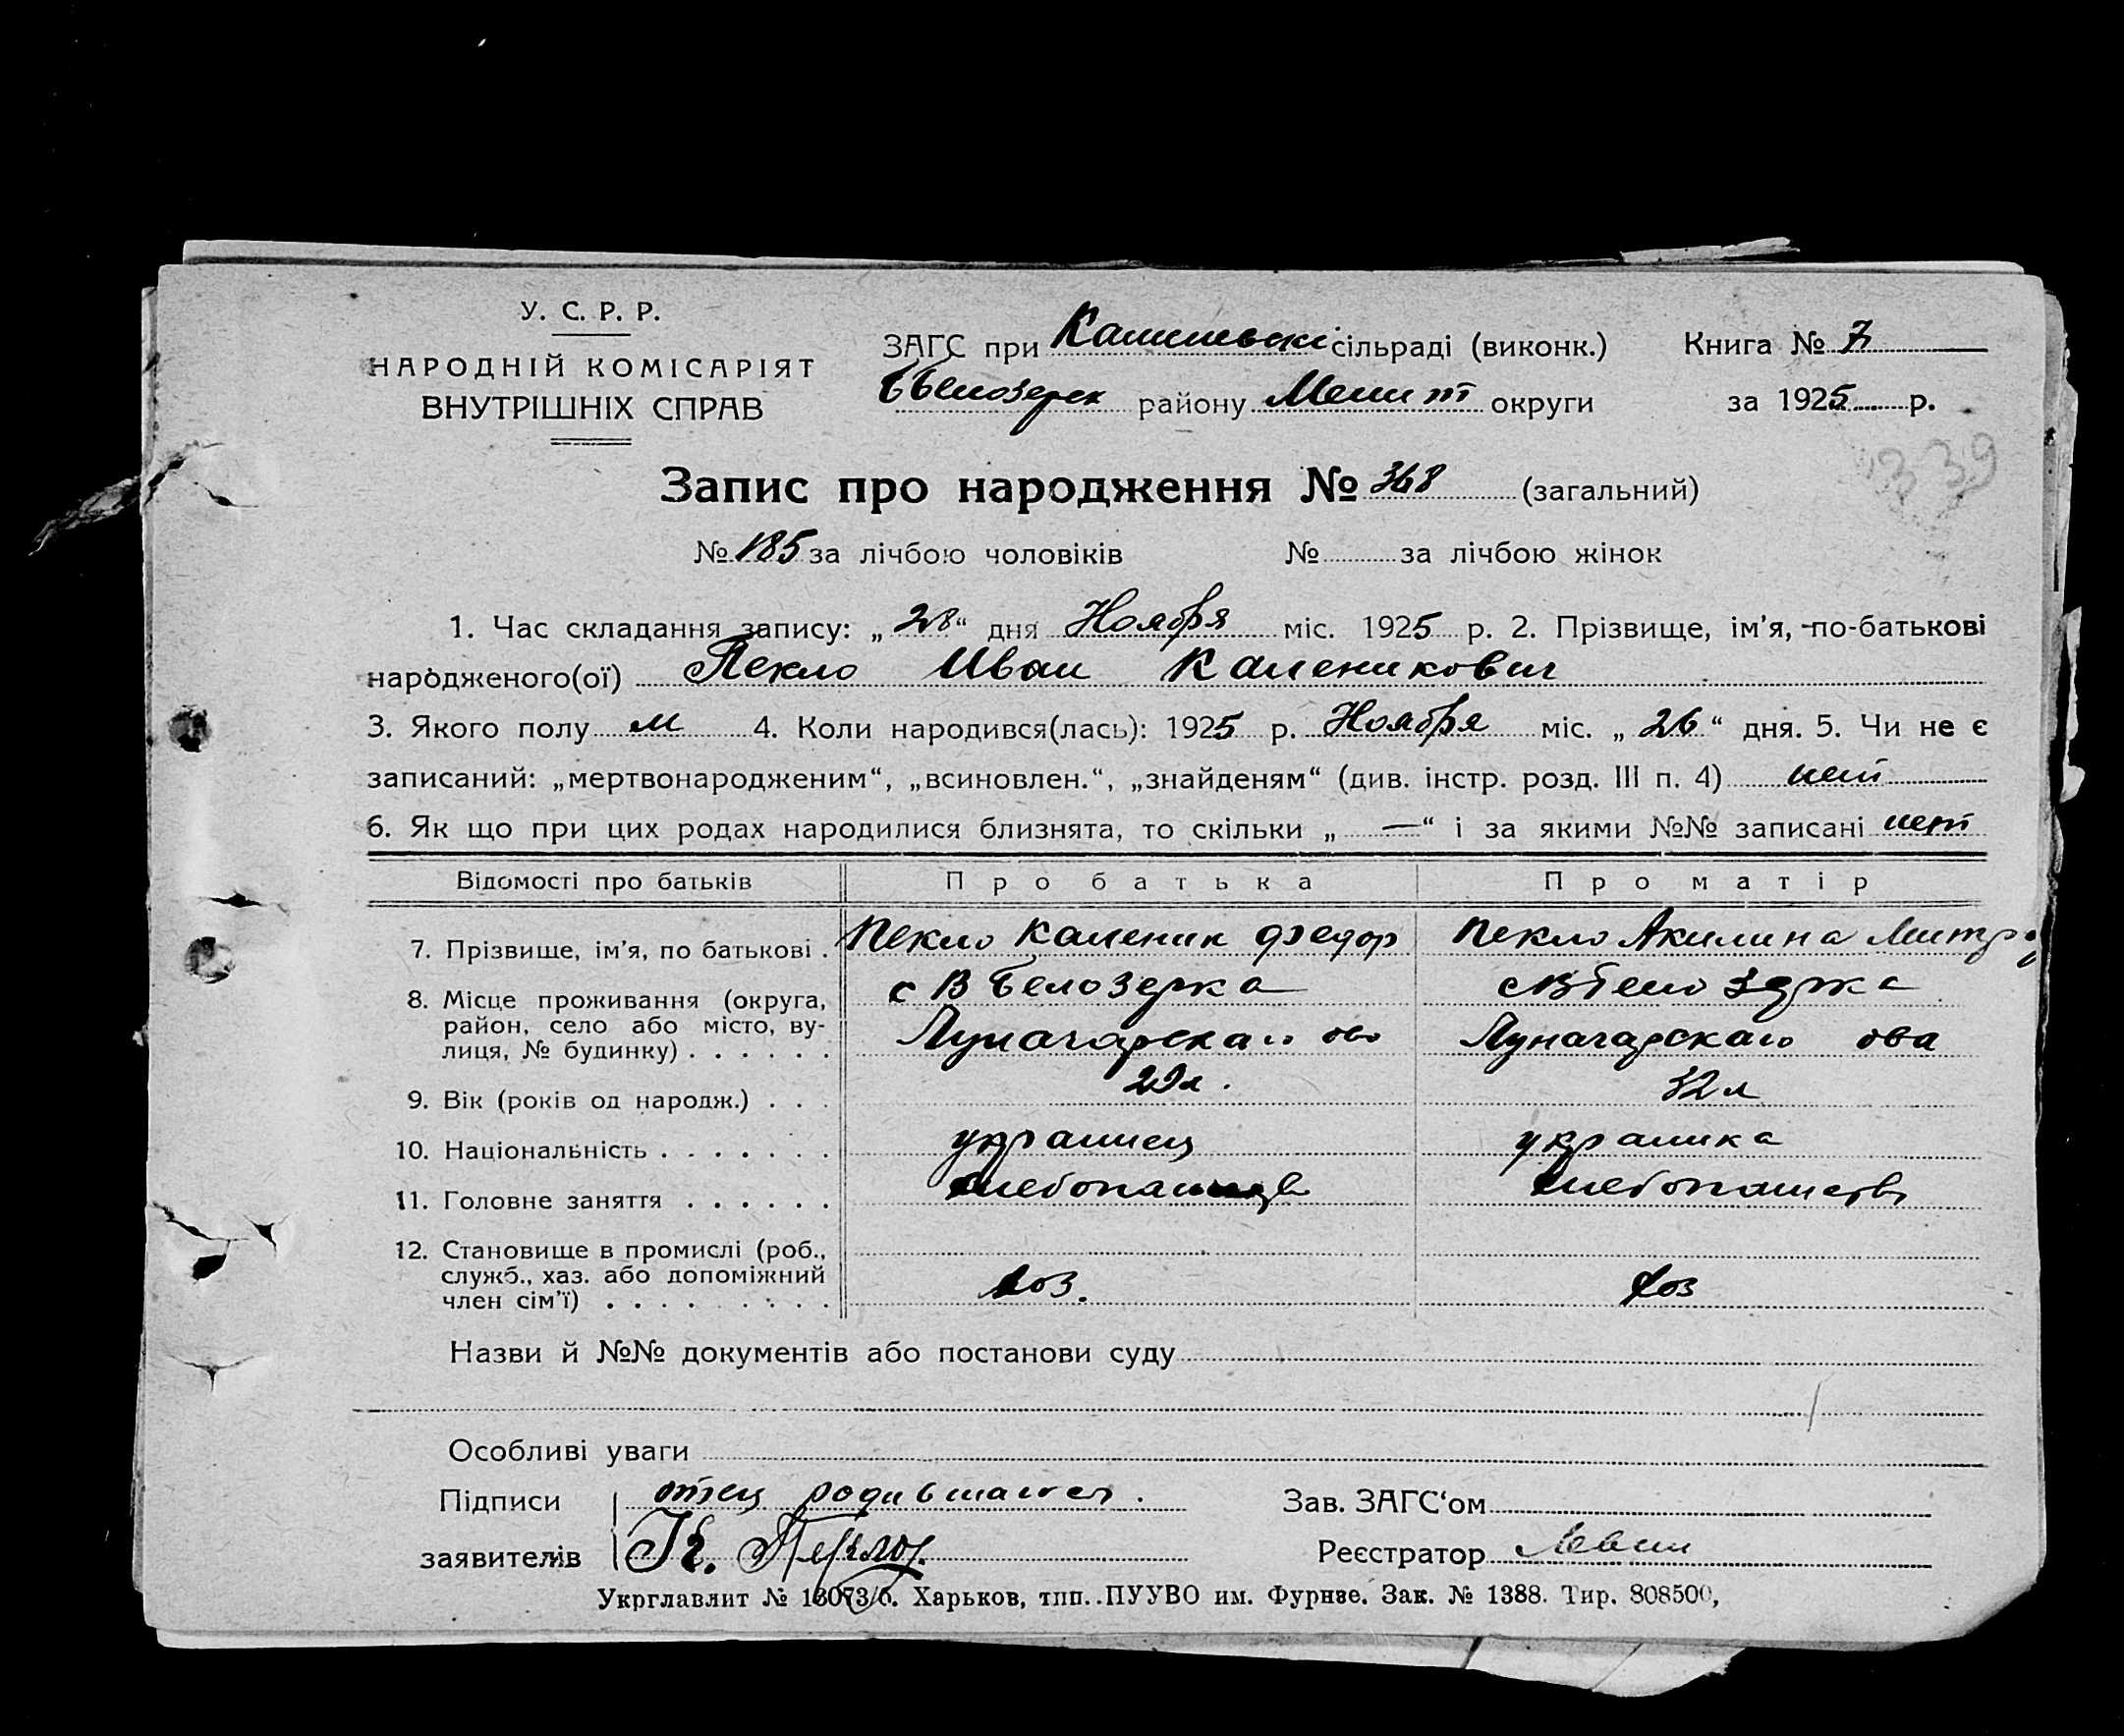 У. С. Р. Р.
НАРОДНІЙ КОМІСАРІЯТ
ВНУТРІШНІХ СПРАВ
ЗАГС при сільраді (виконк.)
Книга № 7
района Мелит округи
за 1925 р.
339
Запис про народження № 368 (загальний)
№ 185 за лічбою чоловіків № за лічбою жінок
1. Час складання запису: „28“ дня Ноября міс. 1925 р. 2. Прізвище, ім’я, по-батькові
народженого(ої) Пекло Иван Каленикович
3. Якого полу м 4. Коли народився(лась): 1925 р. Ноября міс. „26“ дня. 5. Чи не є
записаний: „мертвонародженим“, „всиновлен.“, „знайденям“ (див. інстр. розд. III п. 4) нет
6. Як що при цих родах народилися близнята, то скільки „—“ і за якими №№ записані нет
Відомості про батьків Про батька Про матір
7. Прізвище, ім’я, по батькові . Пекло Каленик Федор Пекло Акилина Митр
8. Місце проживання (округа, с В Белозерка с В Белозерка
район, село або місто, ву-
лиця, № будинку) . . . . . . Луначарскаго ова Луначарскаго ова
9. Вік (років од народж.) . . . 29 л. 32 л
10. Національність . . . . . . . украинец украинка
11. Головне заняття . . . . . . хлебопашество
12. Становище в промислі (роб.,
служб., хаз. або допоміжний
член сім’ї) . . . . . . . . . хоз. хоз
Назви й №№ документів або постанови суду
Особливі уваги
Підписи отец родившагося. Зав. ЗАГС‘ом
заявителів К. Пекло Реєстратор
Укрглавлит № 13073/б. Харьков, тип. ПУУВО им. Фрунзе. Зак. № 1388. Тир. 808500,